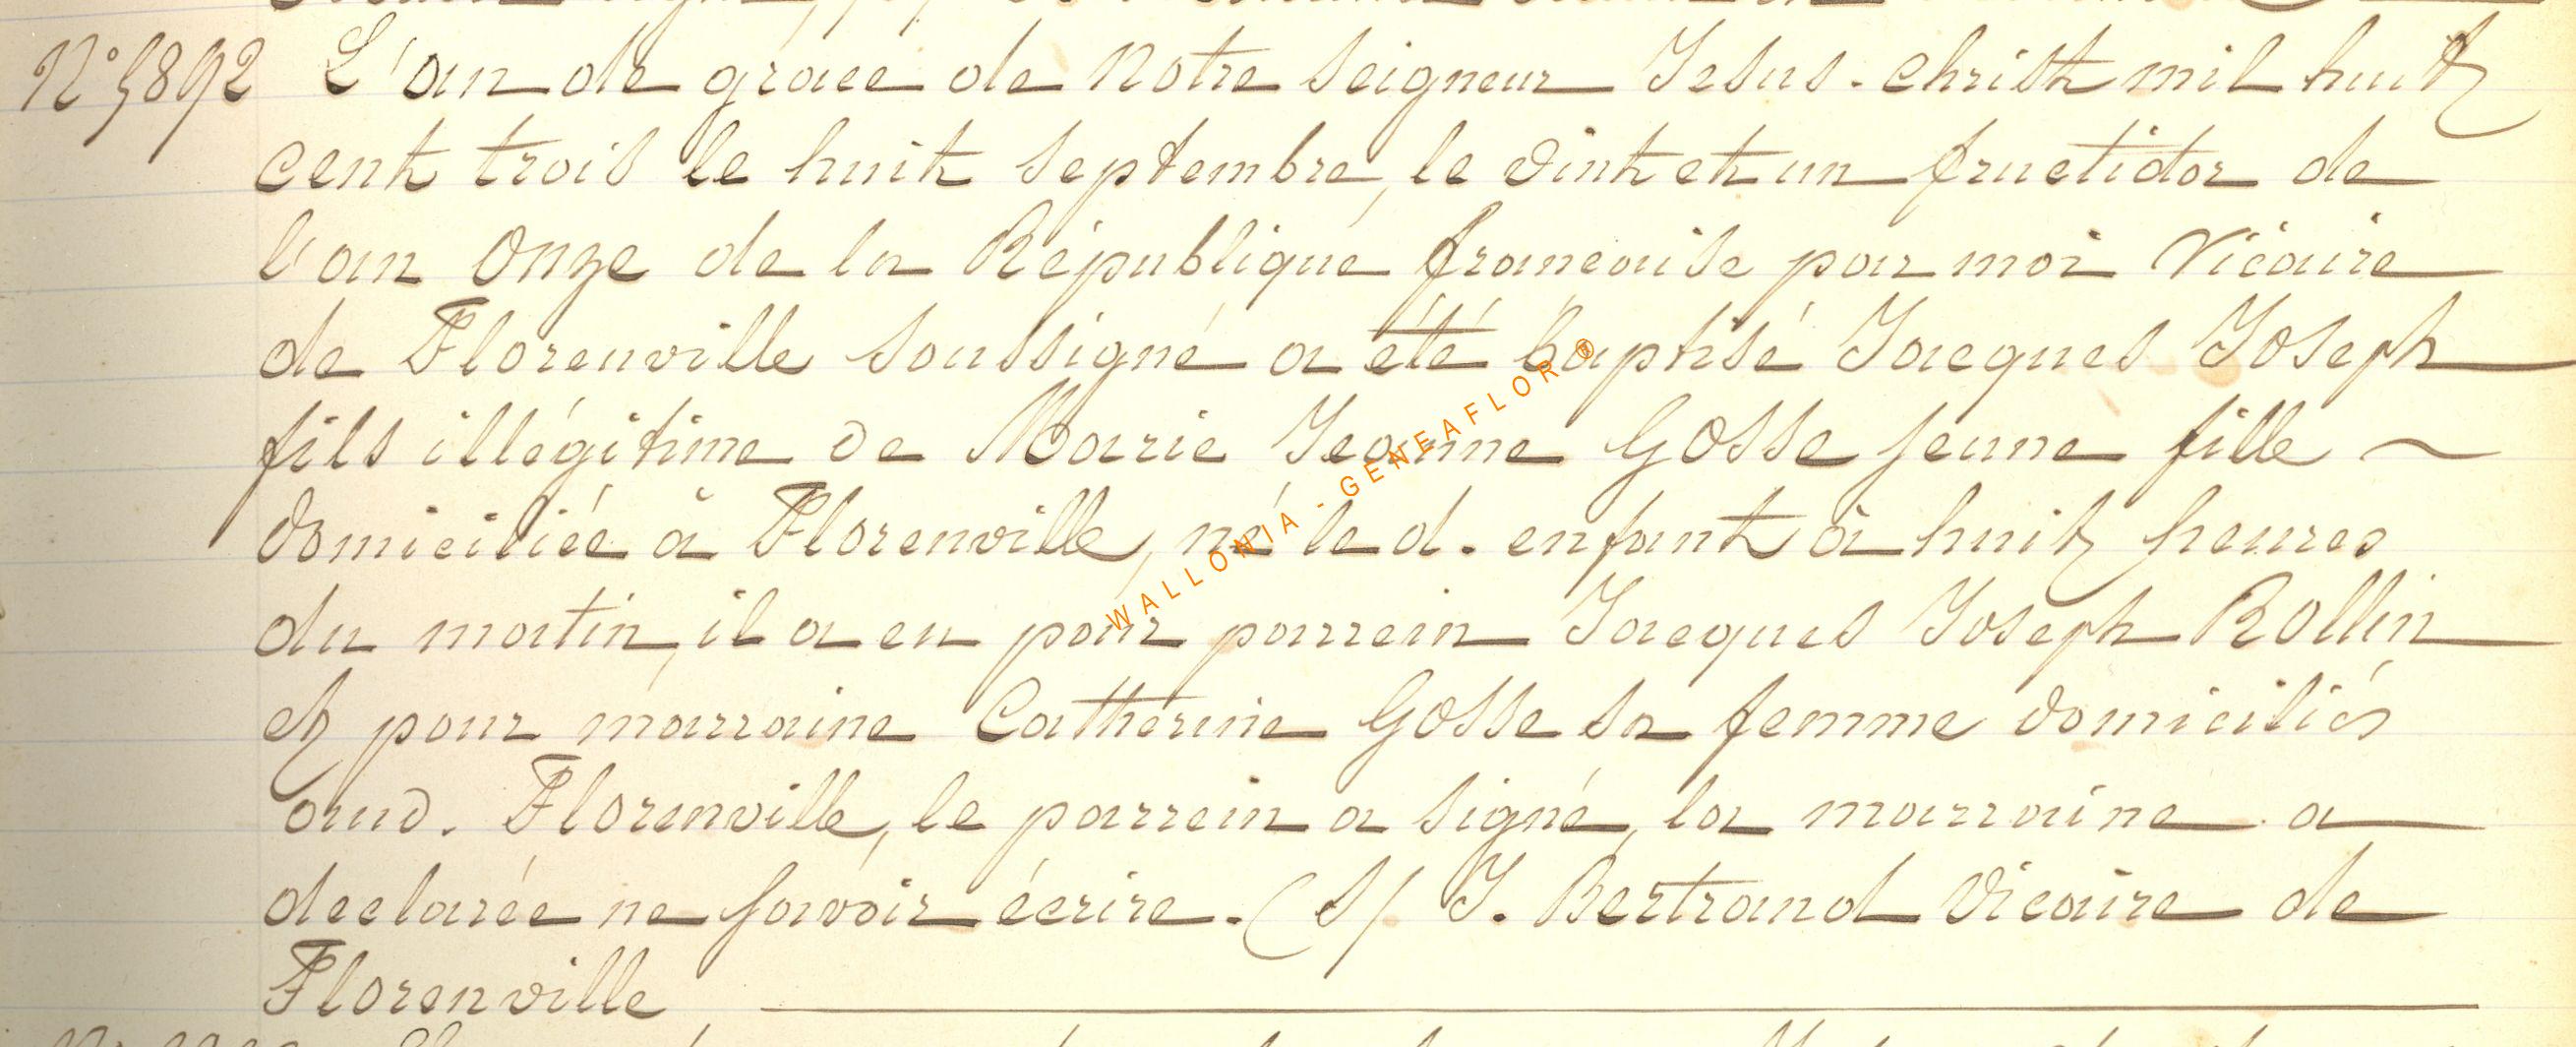 N° 5892 L'an de grâce de Notre Seigneur Jesus-Christ mil huit
cent trois le huit septembre, le vint et un fructidor de
l'an onze de la République francaise par moi Vicaire
de Florenville soussigné a été baptisé Jacques Joseph
fils illégitime de Marie Jeanne Gosse jeune fille ~
domiciliée à Florenville, né led. enfant à huit heures
du matin, il a eu pour parrein Jacques Joseph Rollin
et pour marraine Catherine Gosse sa femme domiciliés
aud. Florenville, le parrein a signé, la marraine a
declarée ne savoir écrire. (S/ J. Bertrand Vicaire de
Florenville
WALLONIA - GENEAFLOR ®